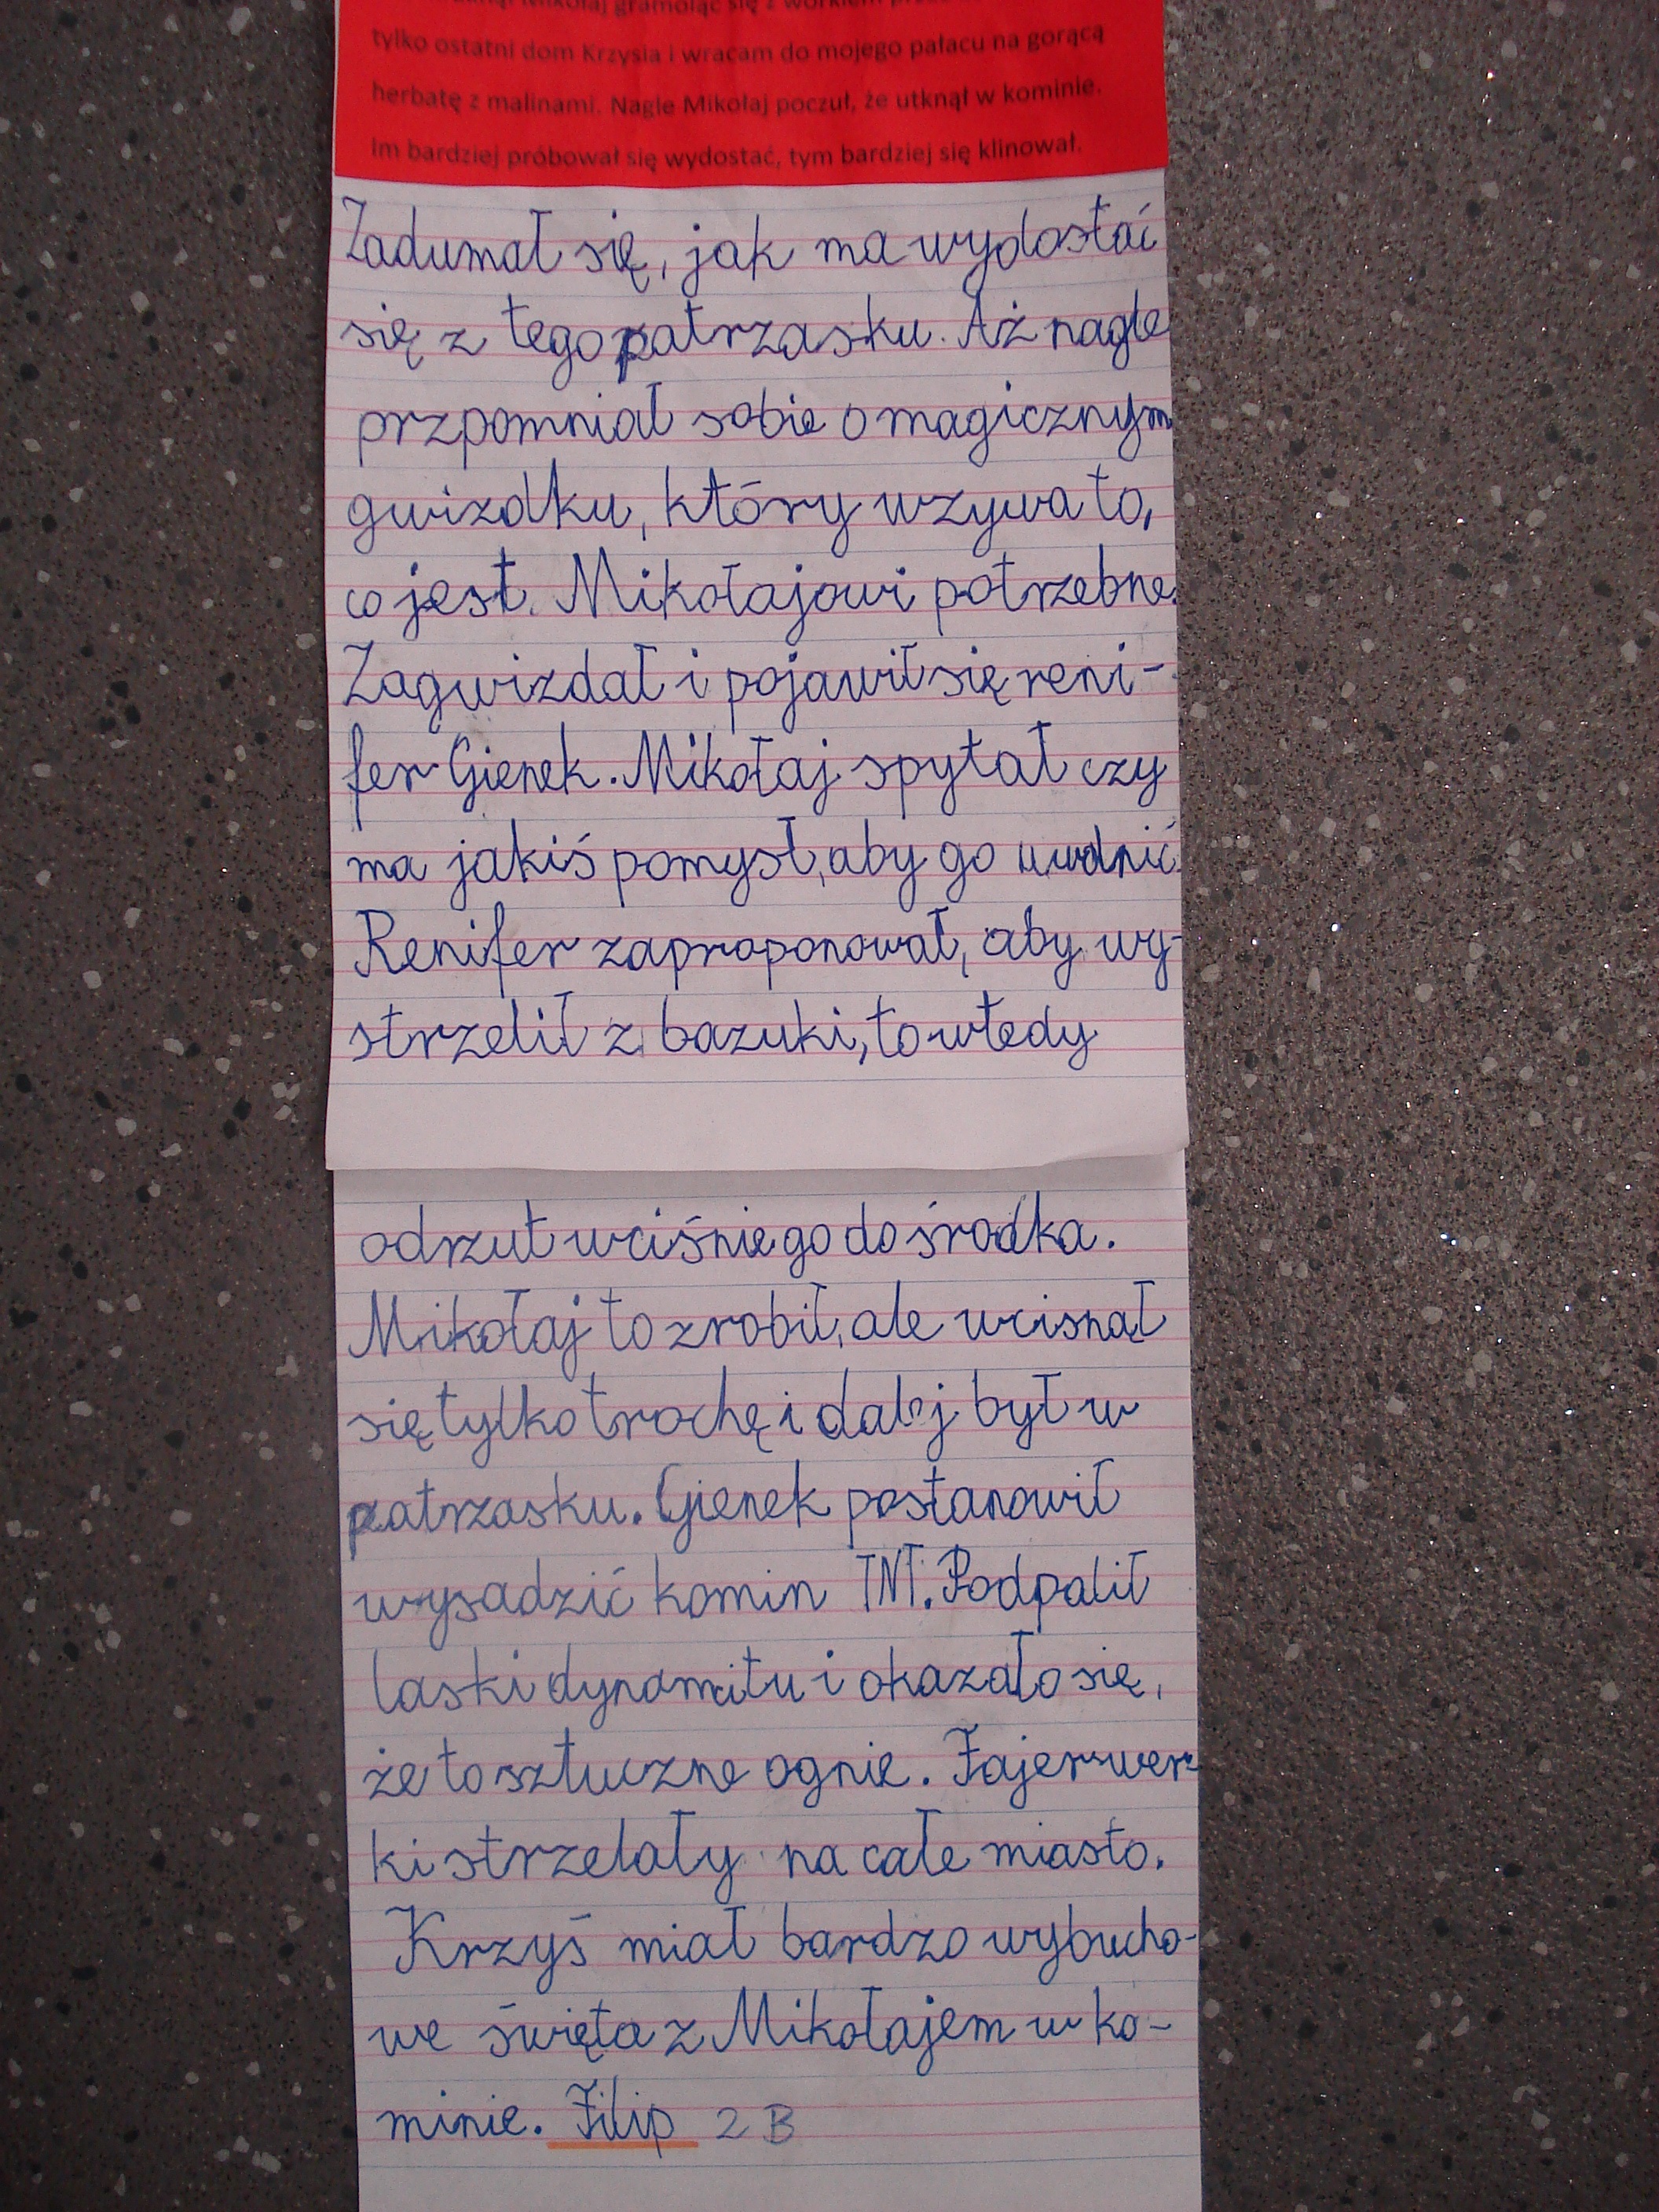 Mikołaj gramoląc się z workiem
tylko ostatni dom Krzysia i wracam do mojego pałacu na gorącą
herbatę z malinami. Nagle Mikołaj poczuł, że utknął w kominie.
Im bardziej próbował się wydostać, tym bardziej się klinował.
Zadumał się, jak ma wydostać
się z tego patrzasku. Aż nagle
przpomniał sobie o magicznym
gwizdku, który wzywa to,
co jest Mikołajowi potrzebne.
Zagwizdał i pojawił się reni-
fer Gienek. Mikołaj spytał czy
ma jakiś pomysł, aby go uwolnić.
Renifer zaproponował, aby wy-
strzelił z bazuki, to wtedy
odrzut wciśnie go do środka.
Mikołaj to zrobił, ale wcisnął
się tylko trochę i dalej był w
patrzasku. Gienek postanowił
wysadzić komin TNT. Podpalił
laski dynamitu i okazało się,
że to sztuczne ognie. Fajerwer-
ki strzelały na całe miasto.
Krzyś miał bardzo wybucho-
we święta z Mikołajem w ko-
minie. Filip 2 B